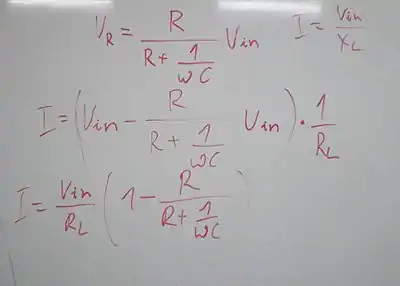 V_R = R / (R + 1/(ωC)) Vin    I = Vin / X_L
I = (Vin − R / (R + 1/(ωC)) Vin) · 1/R_L
I = Vin / R_L (1 − R / (R + 1/(ωC)))